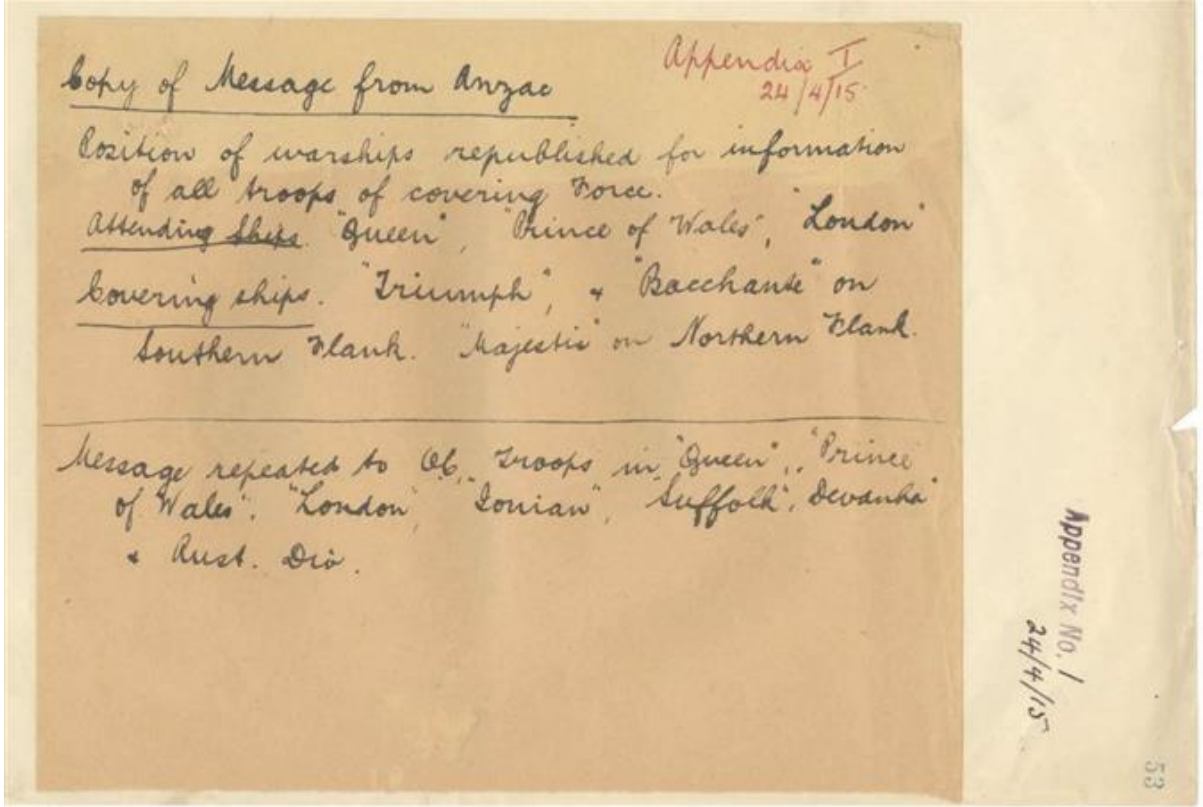 Appendix I
24/4/15
Copy of Message from Anzac
Position of warships republished for information
of all troops of covering Force.
Attending Ships. "Queen", "Prince of Wales", "London"
Covering ships. "Triumph", & "Bacchante" on
Southern Flank. "Majestic" on Northern Flank.
Message repeated to O.C. Troops in "Queen", "Prince
of Wales", "London", "Ionian", "Suffolk", Devanha"
& Aust. Div.
Appendix No. 1
24/4/15
53